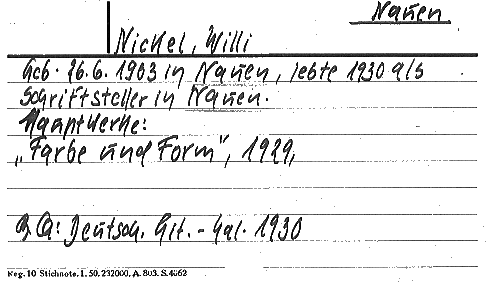 Nauen
Nickel, Willi
Geb. 26.6. 1903 in Nauen, lebte 1930 als
Schriftsteller in Nauen.
Hauptwerke:
„Farbe und Form", 1929,
Qu: Deutsch. Lit.-Kal. 1930
Reg. 10 Stichnote. I. 50. 232000. A. 803. S. 4062